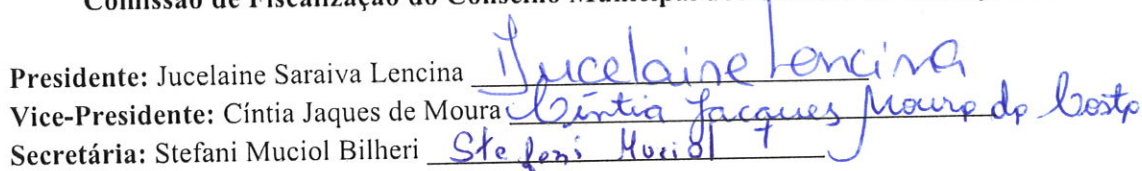 Comissão de Fiscalização do Conselho Municipal dos
Presidente: Jucelaine Saraiva Lencina Jucelaine Lencina
Vice-Presidente: Cíntia Jaques de Moura Cíntia Jacques Moura da Costa
Secretária: Stefani Muciol Bilheri Stefani Muciol